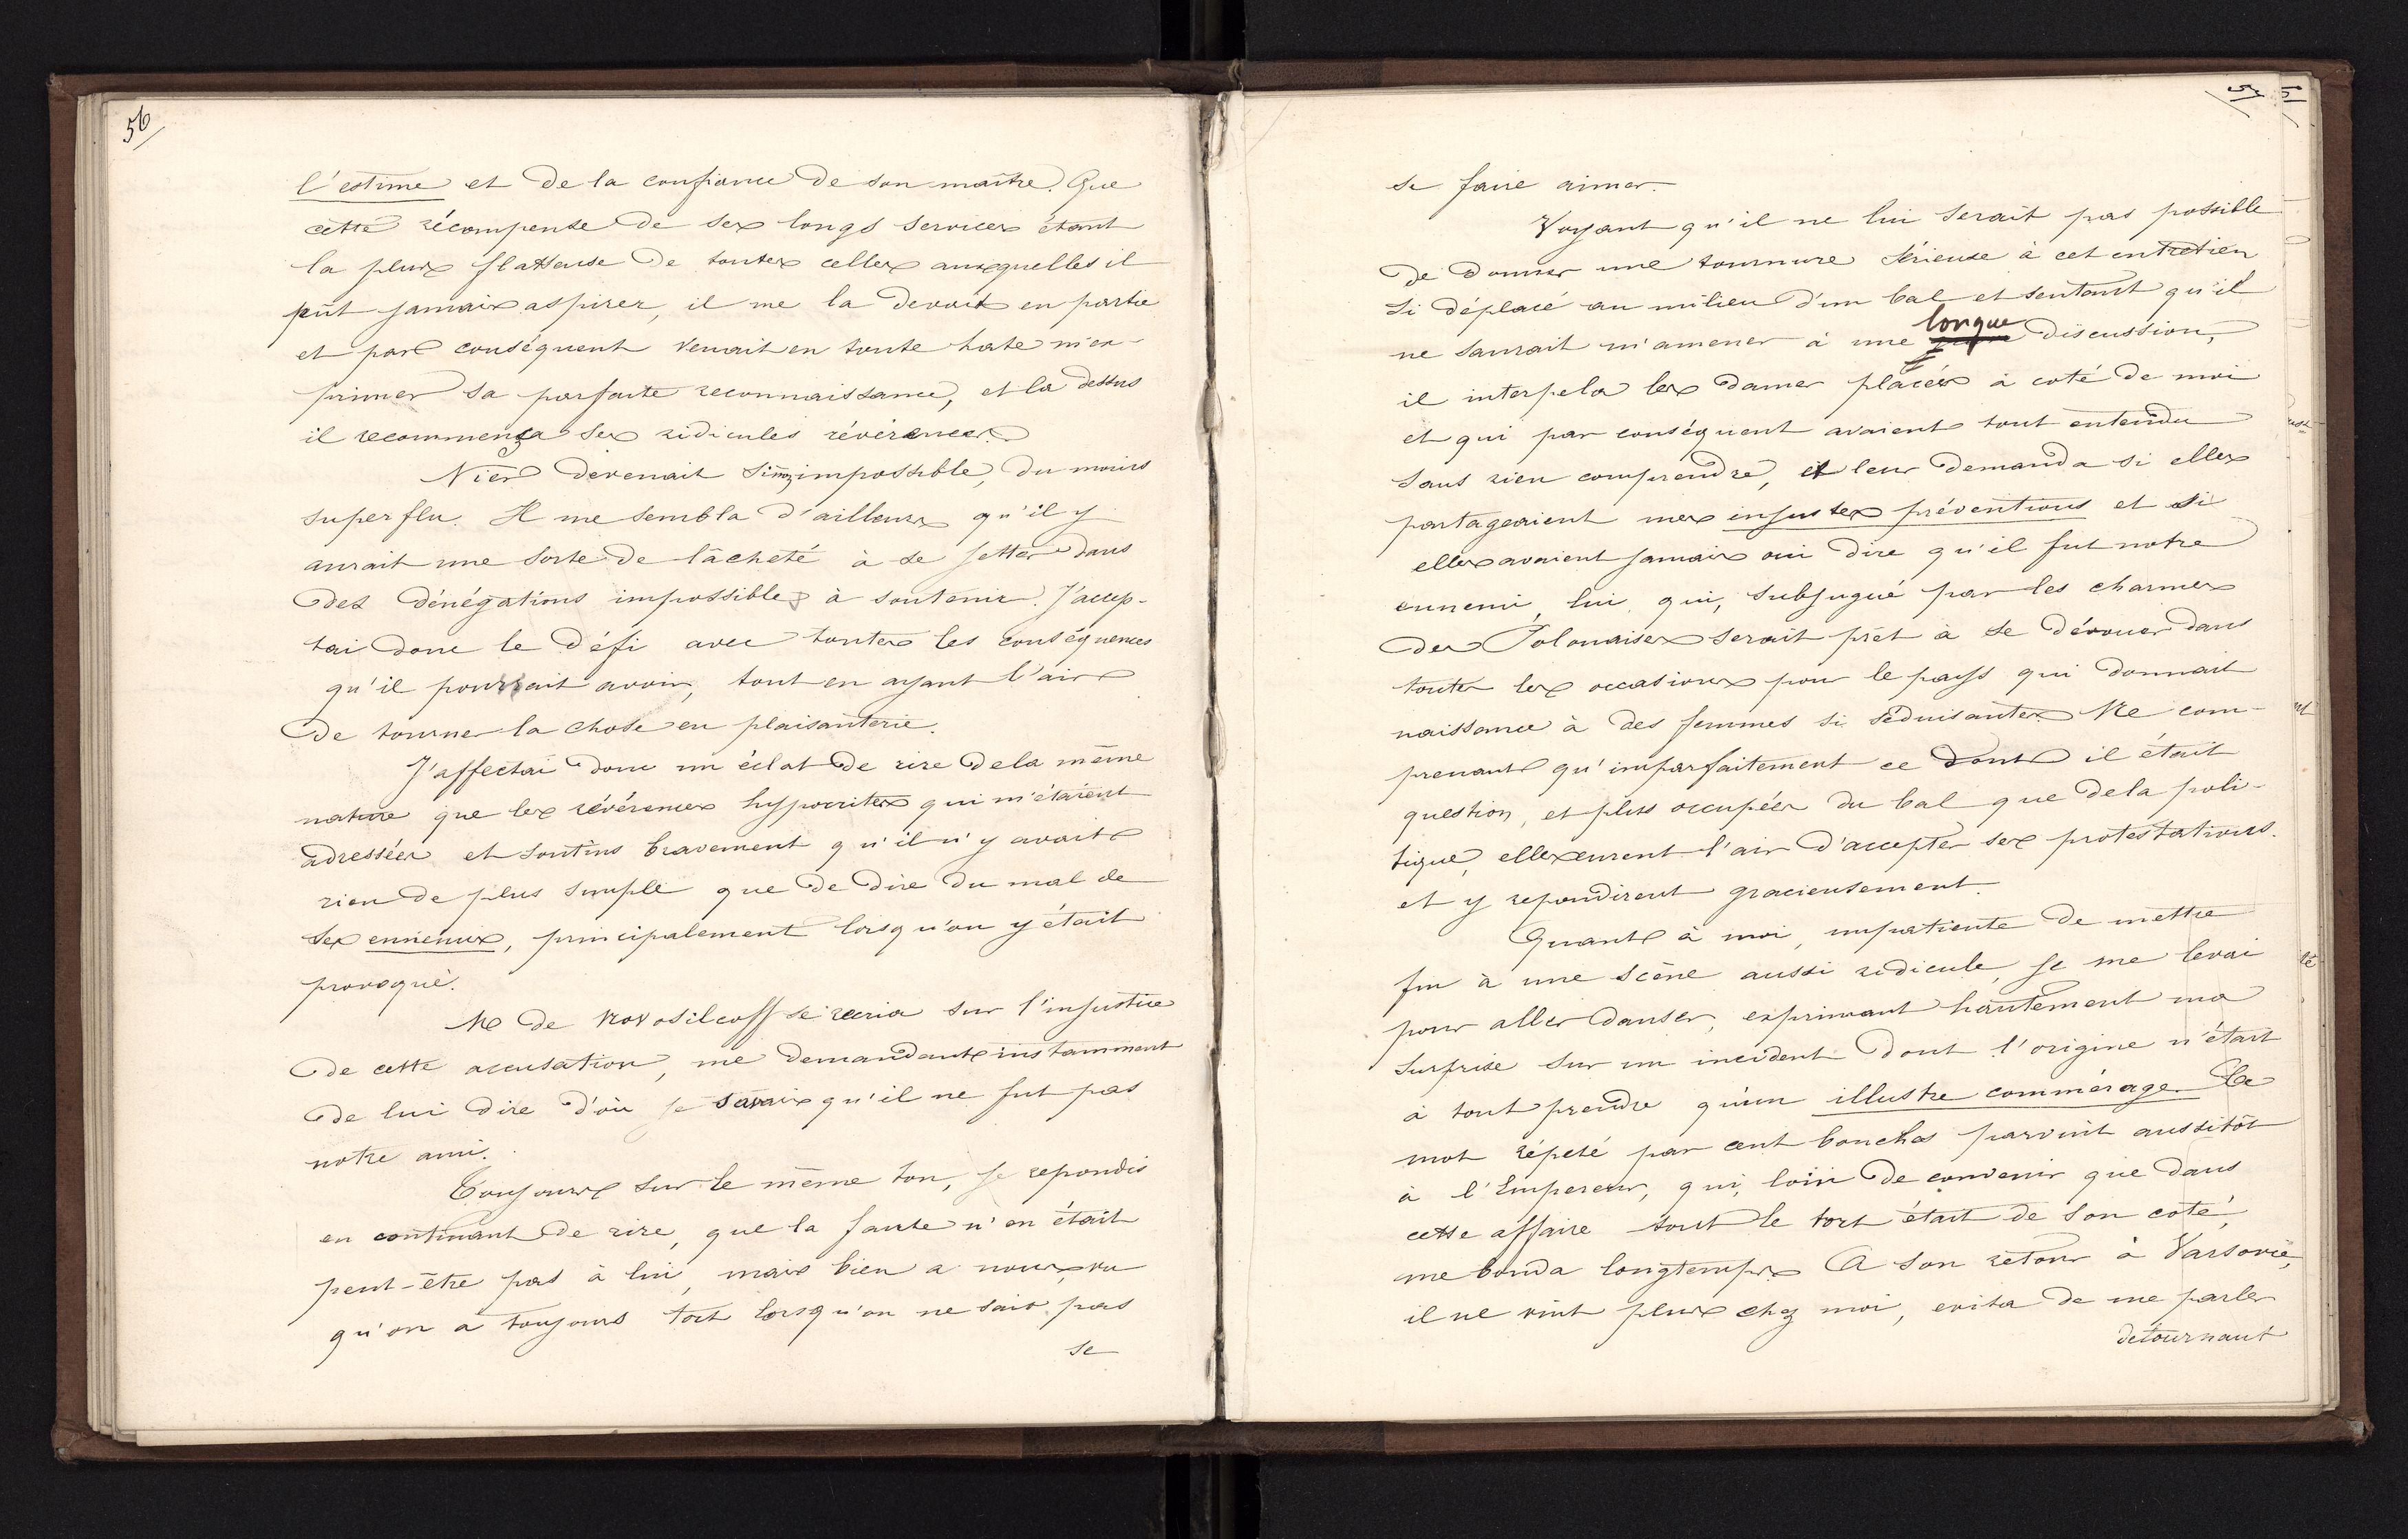 56
l'estime et de la confiance de son maître. Que
cette récompense de ses longs services étant
la plus flatteuse de toutes celles auxquelles il
pût jamais aspirer, il me la devait en partie
et par conséquent venait en toute hate m'ex-
primer sa parfaite reconnaissance, et la dessus
il recommença ses ridicules révérences.
Nier devenait sinon impossible, du moins
superflu. Il me sembla d'ailleurs qu'il y
aurait une sorte de lâcheté à se jetter dans
des dénégations impossibles à soutenir. J'accep-
tai donc le défi avec toutes les conséquences
qu'il pourrait avoir, tout en ayant l'air
de tourner la chose en plaisanterie.
J'affectai donc un éclat de rire de la même
nature que les révérences hypocrites qui m'étaient
adressées et soutins bravement qu'il n'y avait
rien de plus simple que de dire du mal de
ses ennemis, principalement lorsqu'on y était
provoqué.
Mr de Novosilcoff se récria sur l'injustice
de cette accusation, me demandant instamment
de lui dire d'où je savais qu'il ne fut pas
notre ami.
Toujours sur le même ton, je repondis
en continuant de rire, que la faute n'en était
peut-être pas à lui, mais bien a nous, vu
qu'on a toujours tort lorsqu'on ne sait pas
se
57
se faire aimer.
Voyant qu'il ne lui serait pas possible
de donner une tournure sérieuse à cet entretien
si déplacé au milieu d'un bal et sentant qu'il
longue
ne saurait m'amener à une discussion,
il interpela les dames placées à coté de moi
et qui par conséquent avaient tout entendu
sans rien comprendre, il leur demanda si elles
partageaient mes injustes préventions et si
elles avaient jamais oui dire qu'il fut notre
ennemi, lui, qui, subjugué par les charmes
des Polonaises serait prêt à se dévouer dans
toutes les occasions pour le pays qui donnait
naissance à des femmes si séduisantes. Ne com-
prenant qu'imparfaitement ce dont il était
question, et plus occupées du bal que de la poli-
tique, elles eurent l'air d'accepter ses protestations
et y repondirent gracieusement.
Quant à moi, impatiente de mettre
fin à une scène aussi ridicule, je me levai
pour aller danser, exprimant hautement ma
surprise sur un incident dont l'origine n'était
à tout prendre qu'un illustre commérage. Ce
mot répeté par cent bouches parvint aussitôt
à l'Empereur, qui, loin de convenir que dans
cette affaire tout le tort était de son coté,
me bouda longtemps. A son retour à Varsovie,
il ne vint plus chez moi, evita de me parler
detournant